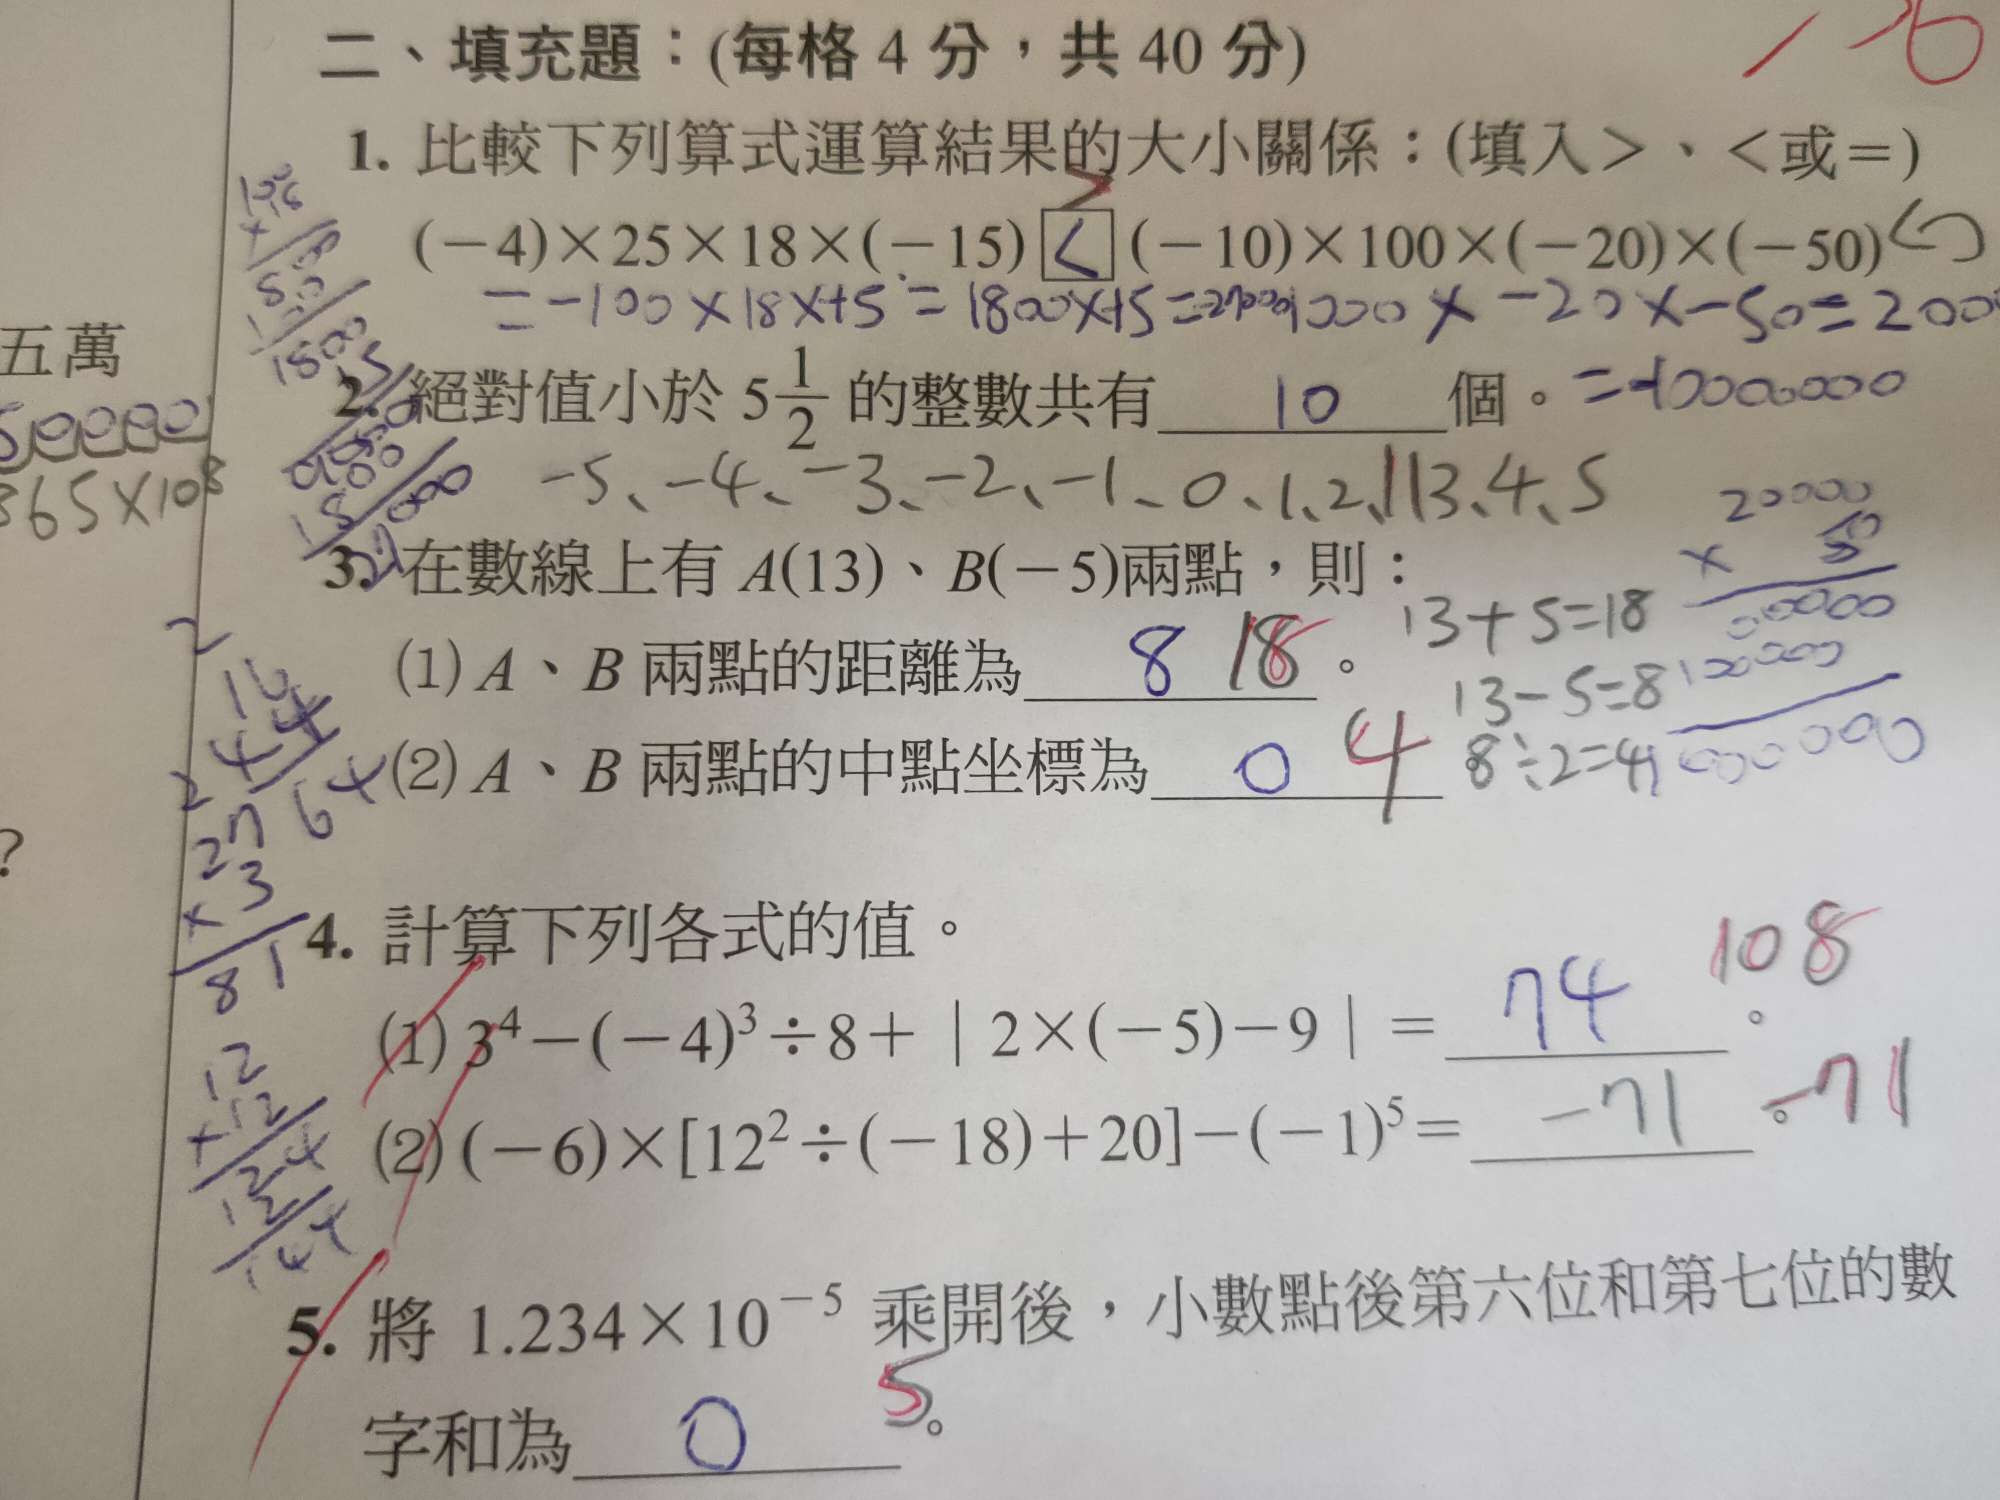 二、填充題：(每格 4 分，共 40 分)
1. 比較下列算式運算結果的大小關係：(填入＞、＜或＝)
>
(－4)×25×18×(－15) < (－10)×100×(－20)×(－50)
= -100×18×15 = 1800×15 = 27000
1000 × -20 × -50 = 2000
五萬
50000
365×10⁸
2. 絕對值小於 5 1/2 的整數共有 10 個。
= -1000000
-5、-4、-3、-2、-1、0、1、2、113、4、5
3. 在數線上有 A(13)、B(－5)兩點，則：
13+5=18
(1) A、B 兩點的距離為 8 18。
13-5=8
(2) A、B 兩點的中點坐標為 0 4
8÷2=4
20000
× 50
00000
100000
1000000
16
4
64
27
×3
81
12
×12
24
12
144
?
4. 計算下列各式的值。
108
(1) 3⁴－(－4)³÷8＋｜2×(－5)－9｜＝ 74。
(2) (－6)×[12²÷(－18)＋20]－(－1)⁵＝ -71。 -71
5. 將 1.234×10⁻⁵ 乘開後，小數點後第六位和第七位的數
字和為 0 5。